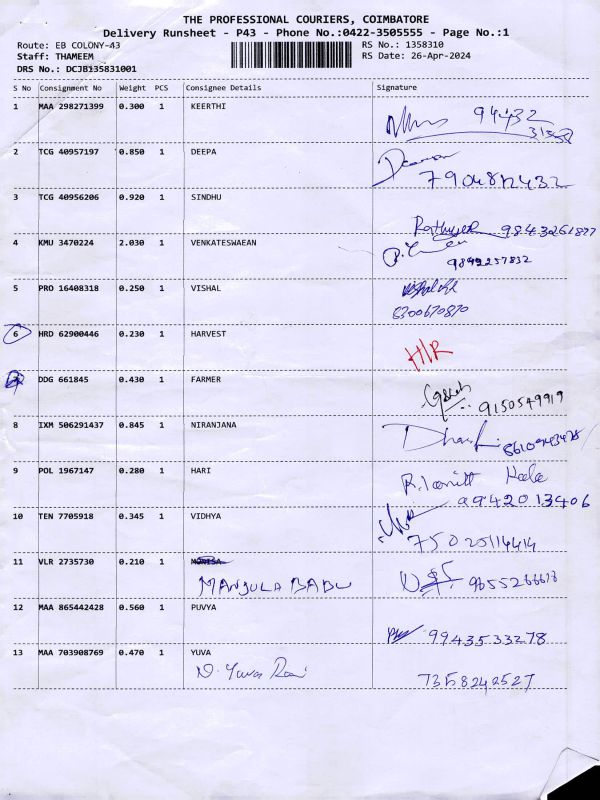 THE PROFESSIONAL COURIERS, COIMBATORE
Delivery Runsheet - P43 - Phone No.:0422-3505555 - Page No.:1
Route: EB COLONY-43 RS No.: 1358310
Staff: THAMEEM RS Date: 26-Apr-2024
DRS No.: DCJB135831001
S No Consignment No Weight PCS Consignee Details Signature
1 MAA 298271399 0.300 1 KEERTHI
94432
2 TCG 40957197 0.850 1 DEEPA
7904812432
3 TCG 40956206 0.920 1 SINDHU
9843261877
4 KMU 3470224 2.030 1 VENKATESWAEAN
9842257832
5 PRO 16408318 0.250 1 VISHAL
6300670870
6 HRD 62900446 0.230 1 HARVEST
H/R
DDG 661845 0.430 1 FARMER
9150549919
8 IXM 506291437 0.845 1 NIRANJANA
9 POL 1967147 0.280 1 HARI
9942013406
10 TEN 7705918 0.345 1 VIDHYA
75025114414
11 VLR 2735730 0.210 1
MANJULA BABU
12 MAA 865442428 0.560 1 PUVYA
9943533278
13 MAA 703908769 0.470 1 YUVA
7358242527